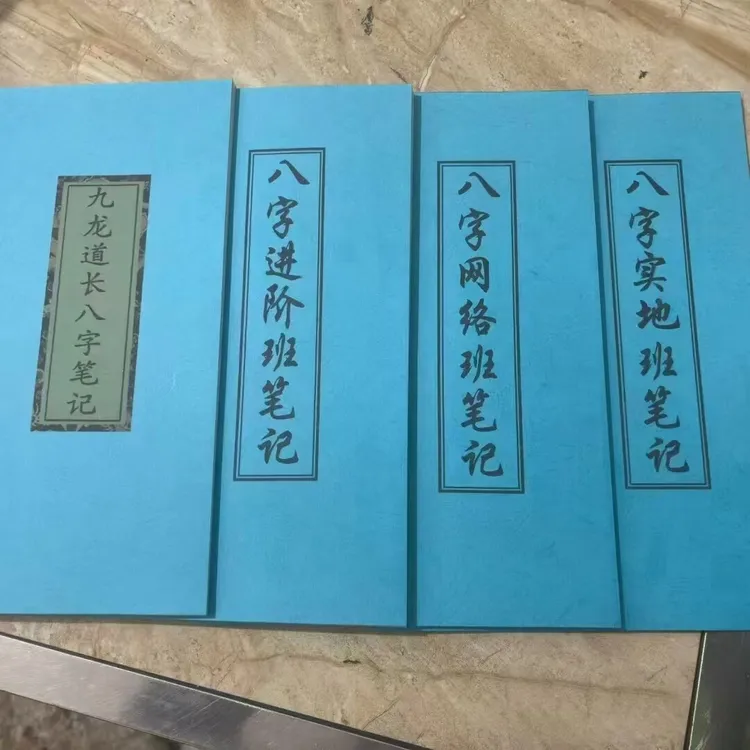 九龙道长八字笔记
八字进阶班笔记
八字网络班笔记
八字实地班笔记